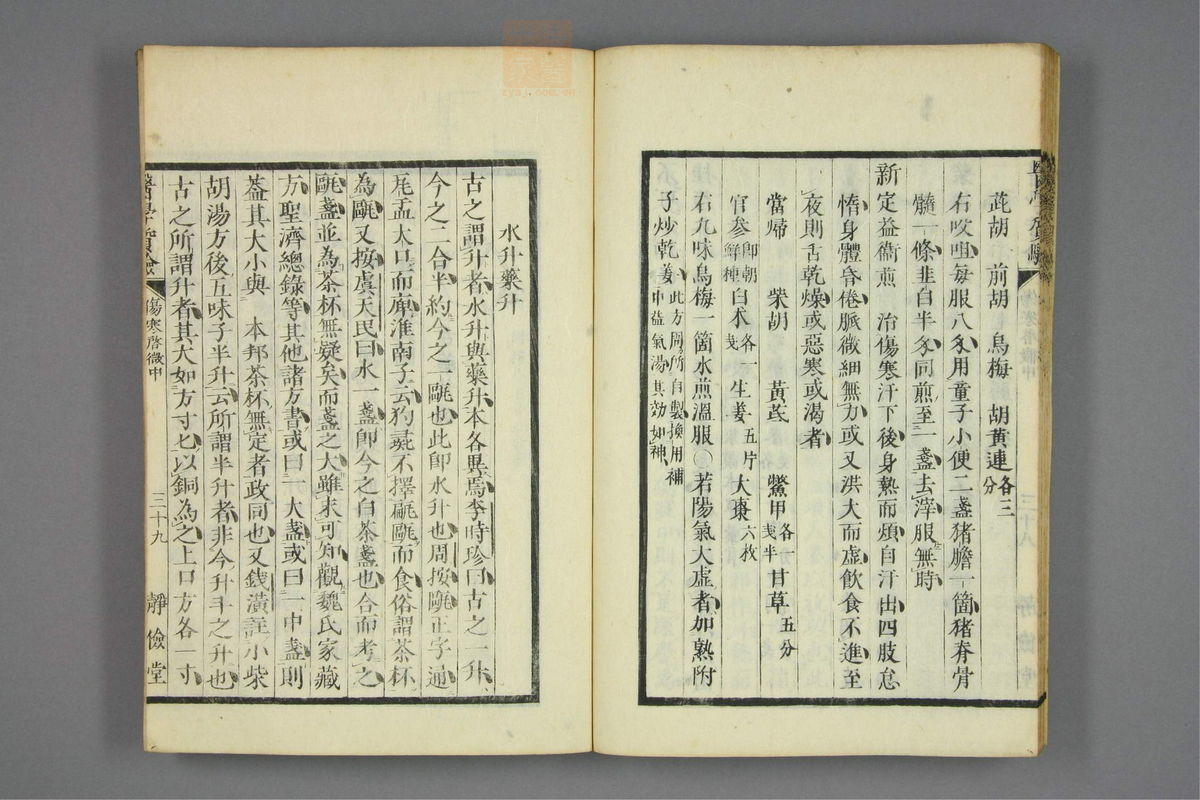 茈胡　前胡　烏梅　胡黃連各三分
右㕮咀每服八多用童子小便二盞猪膽一箇猪脊骨
髓一條韭白半多同煎至一盞去滓服無時
新定益衞煎　治傷寒汗下後身熱而煩自汗出四肢怠
惰身體昏倦脈微細無力或又洪大而虛飲食不進至
夜則舌乾燥或惡寒或渴者
當歸　柴胡　黃芪　鱉甲各一戔半甘草五分
官參卽朝鮮種白朮各一戔生姜五片大棗六枚
右九味烏梅一箇水煎溫服○若陽氣大虛者加熟附
子炒乾姜此方周所自製換用補中益氣湯其効如神
水升藥升
古之謂升者水升與藥升本各異焉李時珍曰古之一升
今之二合半約今之一甌也此卽水升也周按甌正字通
瓦盂大口而庳淮南子云狗彘不擇甂甌而食俗謂茶杯
為甌又按虞天民曰水一盞卽今之白茶盞也合而考之
甌盞並為茶杯無疑矣而盞之大雖未可知觀魏氏家藏
方聖濟總錄等其他諸方書或曰一大盞或曰一中盞則
蓋其大小與　本邦茶杯無定者政同也又錢潢註小柴
胡湯方後五味子半升云所謂半升者非今升斗之升也
古之所謂升者其大如方寸匕以銅為之上口方各一寸
醫學質驗
傷寒啓微中
三十九
靜儉堂